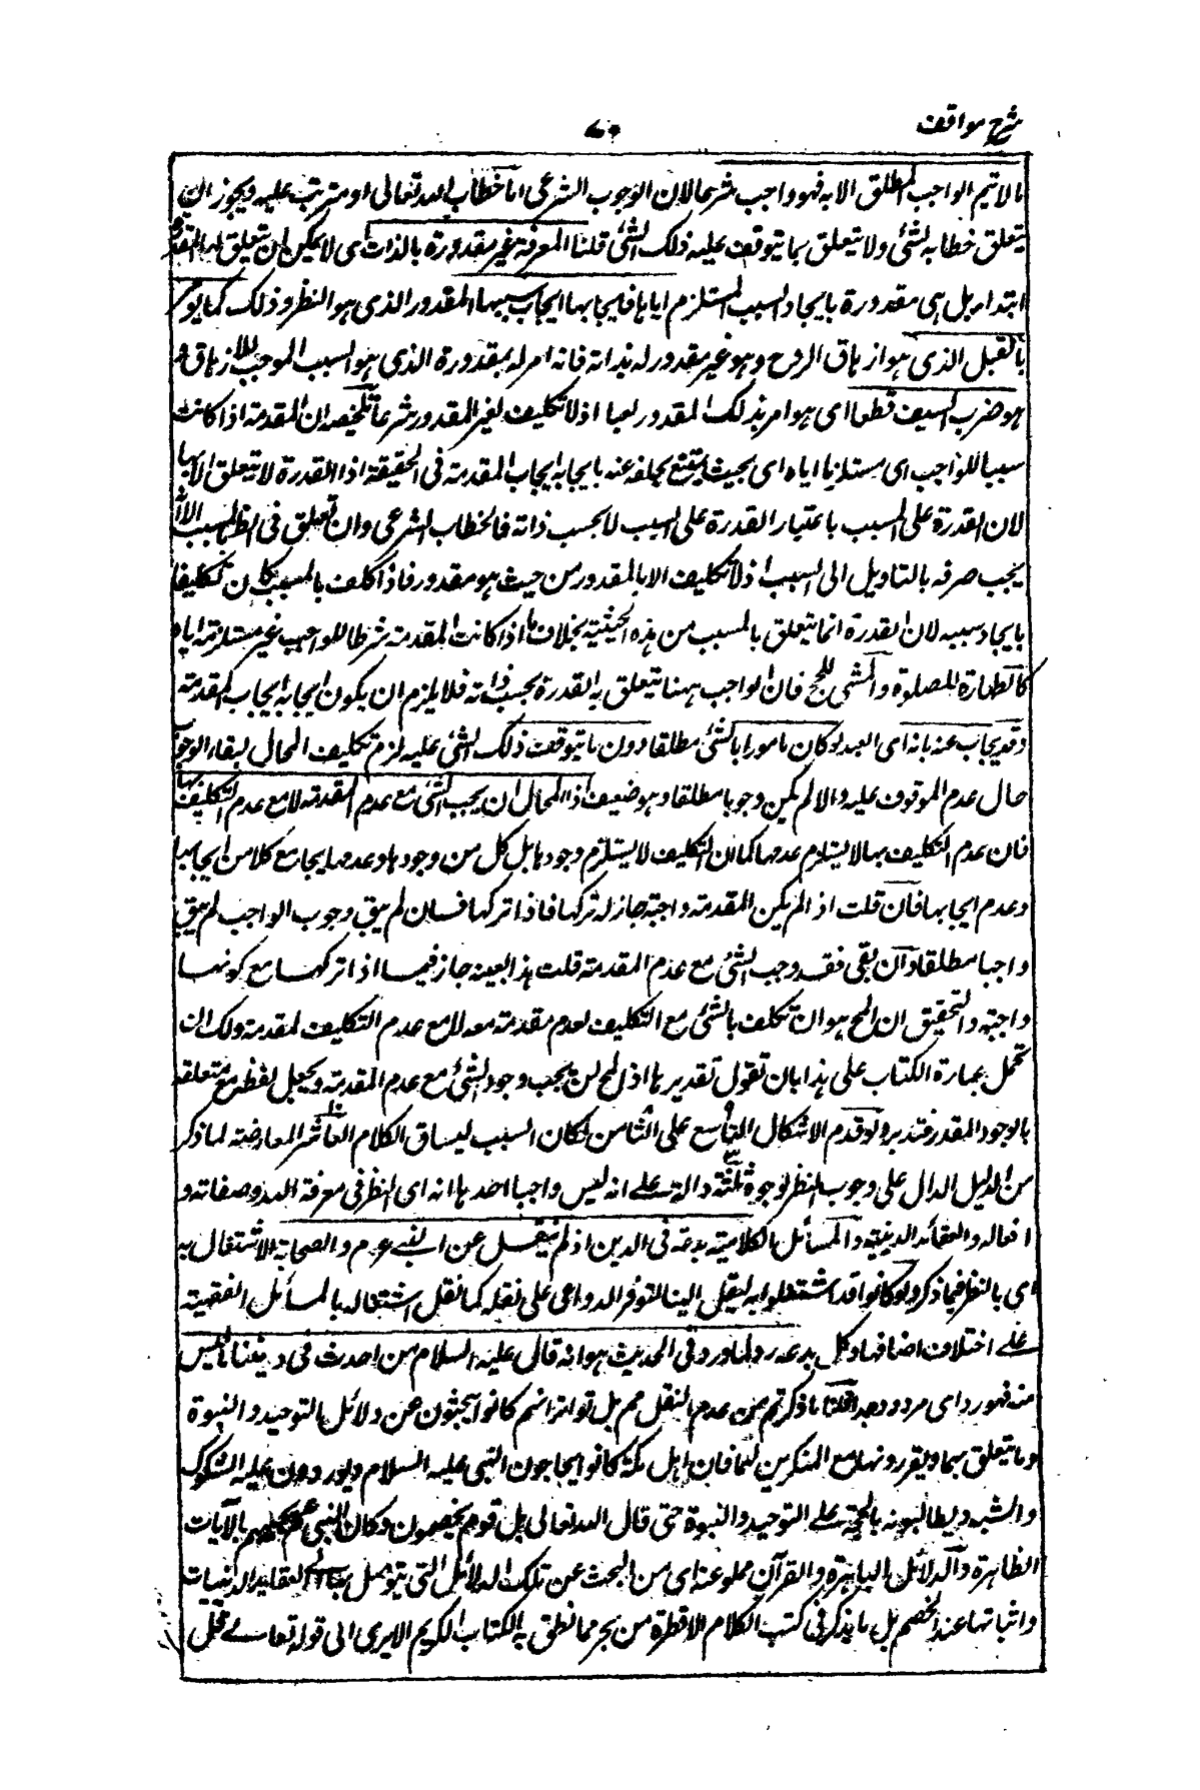 شرح مواقف
٦٠
ما لا يتم الواجب المطلق الا به فهو واجب شرعا لان الوجوب الشرعى اما خطاب الله تعالى او مترتب عليه ويجوز ان
يتعلق خطابه لشئ ولا يتعلق بما يتوقف عليه ذلك الشئ قلنا المعرفة غير مقدورة بالذات اى لا يمكن ان يتعلق بها القدرة
ابتداء بل هى مقدورة بايجاد السبب المستلزم اياها فايجابها ايجاب سببها المقدور الذى هو النظر وذلك كما يومر
بالقتل الذى هو ازهاق الروح وهو غير مقدور له بذاته فانه امر له بمقدورة الذى هو السبب الموجب للازهاق و
هو ضرب السيف قطعا اى هو امر بذلك المقدور لعبا اذ لا تكليف لغير المقدور شرعا تلخيصه ان المقدمة اذا كانت
سببا للواجب اى مستلزما اياه اى بحيث يمتنع تخلفه عنه بايجابه ايجاب المقدمة فى الحقيقة اذ القدرة لا تتعلق الا بها
لان القدرة على المسبب باعتبار القدرة على السبب لا بحسب ذاته فالخطاب الشرعى وان تعلق فى الظاهر بالمسبب الا انه
يجب صرفه بالتاويل الى السبب اذ لا تكليف الا بالمقدور من حيث هو مقدور فاذا كلف بالمسبب كان تكليفا
بايجاد سببه لان القدرة انما تتعلق بالمسبب من هذه الحيثية بخلاف ما اذا كانت المقدمة شرطا للواجب غير مستلزمة اياه
كالطهارة للصلوة والمشى للحج فان الواجب ههنا يتعلق به القدرة بحسب ذاته فلا يلزم ان يكون ايجابه ايجاب المقدمة
وقد يجاب عنه بانه اى العبد لو كان مامورا بالشئ مطلقا دون ما يتوقف ذلك الشئ عليه لزم تكليف المحال لبقاء الوجوب
حال عدم الموقوف عليه والا لم يكن وجوبا مطلقا وهو ضعيف اذ المحال ان يجب الشئ مع عدم المقدمة لا مع عدم التكليف بها
فان عدم التكليف بها لا يستلزم عدمها كما ان التكليف لا يستلزم وجودها بل كل من وجودها وعدمها يجامع كلا من ايجابها
وعدم ايجابها فان قلت اذا لم يكن المقدمة واجبة جاز له تركها فاذا تركها فان لم يبق وجوب الواجب لم يبق
واجبا مطلقا وان بقى فقد وجب الشئ مع عدم المقدمة قلت هذا بعينه جاز فيما اذا تركها مع كونها
واجبة والتحقيق ان المحال هو ان تكلف بالشئ مع التكليف لعدم مقدمته معه لا مع عدم التكليف لمقدمته ولك ان
تحمل عبارة الكتاب على هذا بان تقول تقديرها اذ المحال ان يجب وجود الشئ مع عدم المقدمة وتجعل لفظ مع متعلقة
بالوجود المقدر فتدبر ولو قدم الاشكال التاسع على الثامن لكان انسب لمساق الكلام العاشر المعارضة لما ذكر
من الدليل الدال على وجوب النظر لوجوه ثلثة دالة على انه ليس واجبا احدها انه اى النظر فى معرفة الله وصفاته و
افعاله والعقائد الدينية والمسائل الكلامية بدعة فى الدين اذ لم ينقل عن النبى عم والصحابة الاشتغال به
اى بالنظر فيما ذكر ولو كانوا قد اشتغلوا به لنقل الينا لتوفر الدواعى على نقله كما نقل اشتغاله بالمسائل الفقهية
على اختلاف اصنافها وكل بدعة رد لما ورد فى الحديث هو انه قال عليه السلام من احدث فى ديننا ما ليس
منه فهو رد اى مردود جدا قلنا ما ذكرتم من عدم النقل مم بل تواتر انهم كانوا يبحثون عن دلائل التوحيد والنبوة
وما يتعلق بهما ويقررونها مع المنكرين لهما فان اهل مكة كانوا يحاجون النبى عليه السلام ويوردون عليه الشكوك
والشبه ويطالبونه بالحجة على التوحيد والنبوة حتى قال الله تعالى بل قوم يخصمون وكان النبى عم يجيبهم بالآيات
الظاهرة والدلائل الباهرة والقرآن مملو عنه اى من البحث عن تلك الدلائل التى يتوصل بها الى العقايد الدينيات
واثباتها عند الخصم بل ما يذكر فى كتب الكلام الا قطرة من بحر مما نطق به الكتاب الكريم الا يرى الى قوله تعالى قل